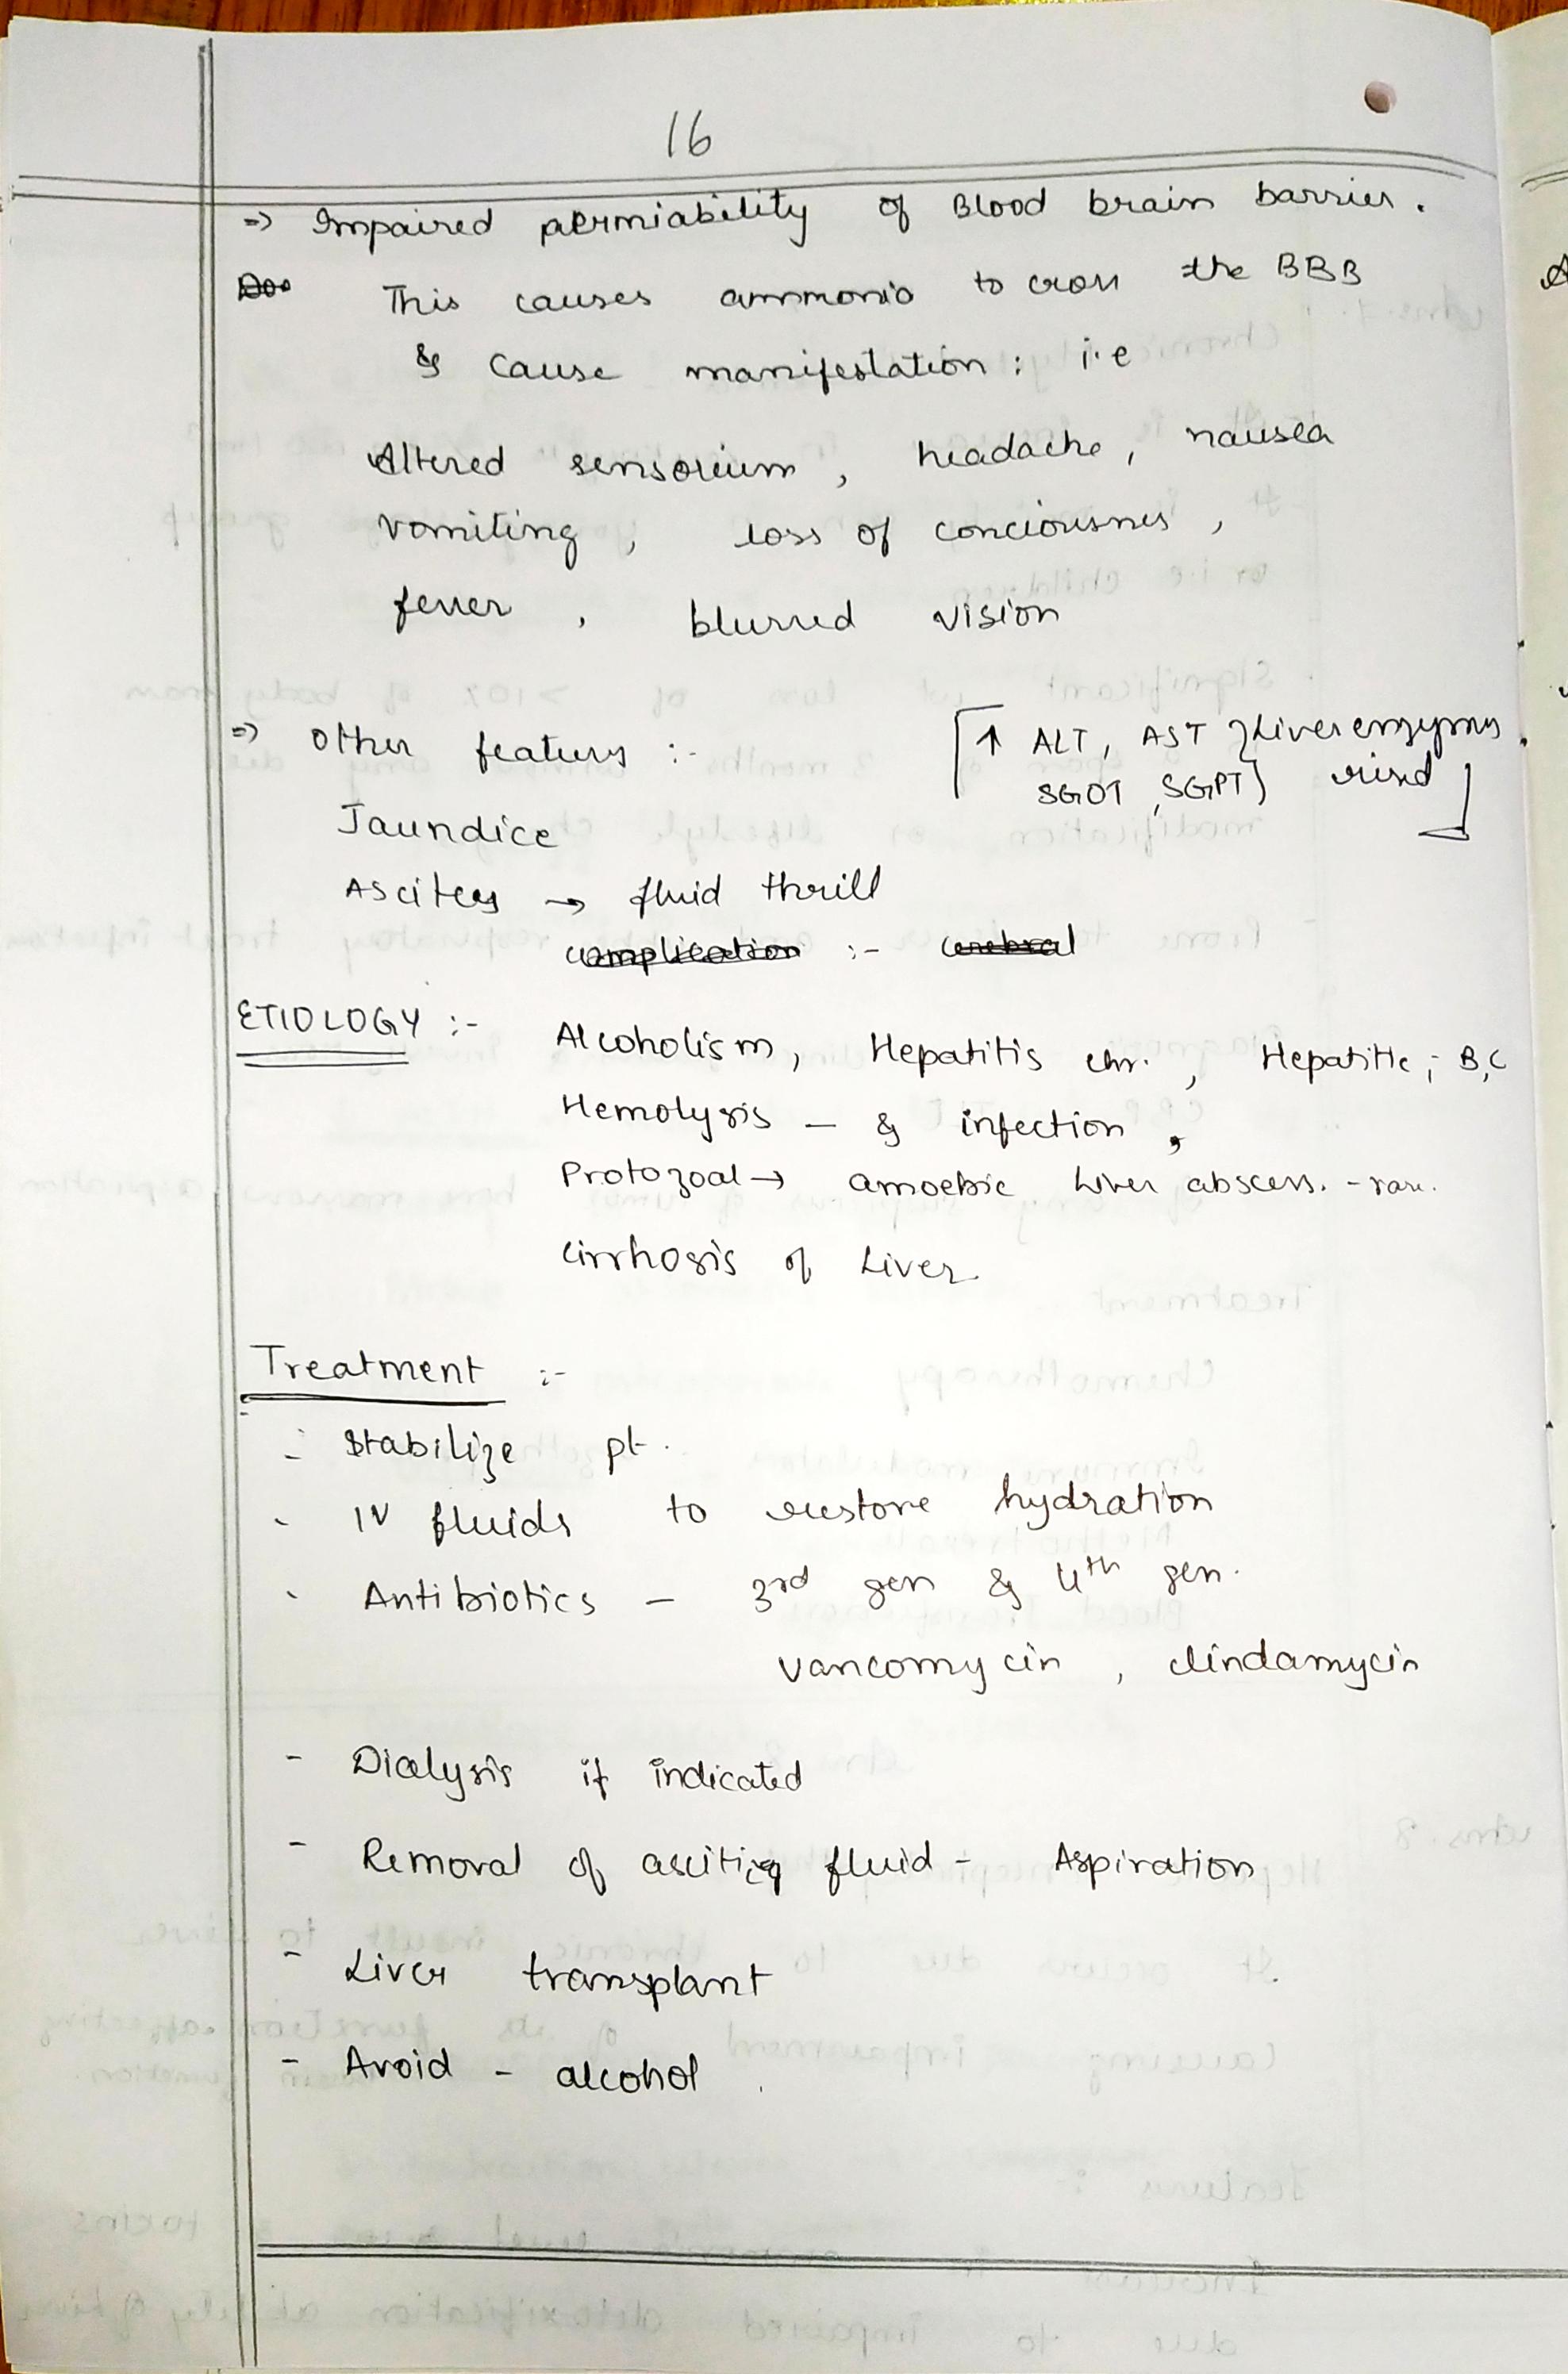 16
=> Impaired permiability of Blood brain barrier.
This causes ammonia to cross the BBB
& cause manifestation : i.e
Altered sensorium , headache , nausea
vomiting , loss of conciousnes ,
fever , blurred vision
=> Other features :-
[ ↑ ALT, AST } Liver enzymes
SGOT , SGPT } rised ]
Jaundice
Ascites → fluid thrill
complication :- cerebral
ETIOLOGY :- Alcoholism, Hepatitis chr. , Hepatitic ; B,C
Hemolysis - & infection ,
Protozoal → amoebic liver abscess. - rare.
Cirrhosis of Liver
Treatment :-
- Stabilize pt.
- IV fluids to restore hydration
- Antibiotics - 3rd gen & 4th gen.
vancomycin , clindamycin
- Dialysis if indicated
- Removal of ascitic fluid - Aspiration
- Liver transplant
- Avoid - alcohol .